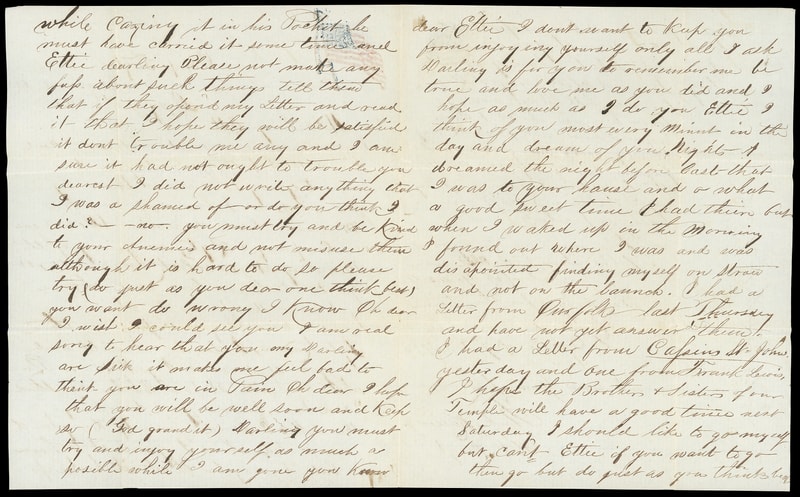 while Caring it in his Pocket he
must have carried it some time and
Ettie dearling Please not make any
fuss about such things tell them
that if they opend my Letter and read
it that I hope they will be satisfied
it dont trouble me any and I am
sure it had not ought to trouble you
dearest I did not write anything that
I was a shamed of or do you think I
did? — no. you must try and be Kind
to your Auenie and not misuse them
although it is hard to do so please
try (do just as you dear one think best)
you want do wrong I Know Oh dear
I wish I could see you I am real
sorry to hear that you my Darling
are Sick it makes me feel bad to
think you are in Pain Oh dear I hope
that you will be well soon and Keep
so (God grand it) Darling you must
try and enjoy yourself as much as
posible while I am gone you know
dear Ettie I dont want to Keep you
from injoying yourself only all I ask
Darling is for you to remember me be
true and love me as you did and I
hope as much as I do you Ettie I
think of you most every Minut in the
day and dream of you Nights I
dreamed the night before last that
I was to your house and o what
a good sweet time I had thier but
when I waked up in the Morning
I found out where I was and was
disapointed finding myself on straw
and not on the launch. I had a
Letter from last Thursday
and have not yet answer them.
I had a Letter from St John
yesterday and one from Frank Lewis
I hope the Brothers & Sisters of our
Temple will have a good time next
Saturday I should like to go myself
but cant Ettie if you want to go
then go but do just as you think best